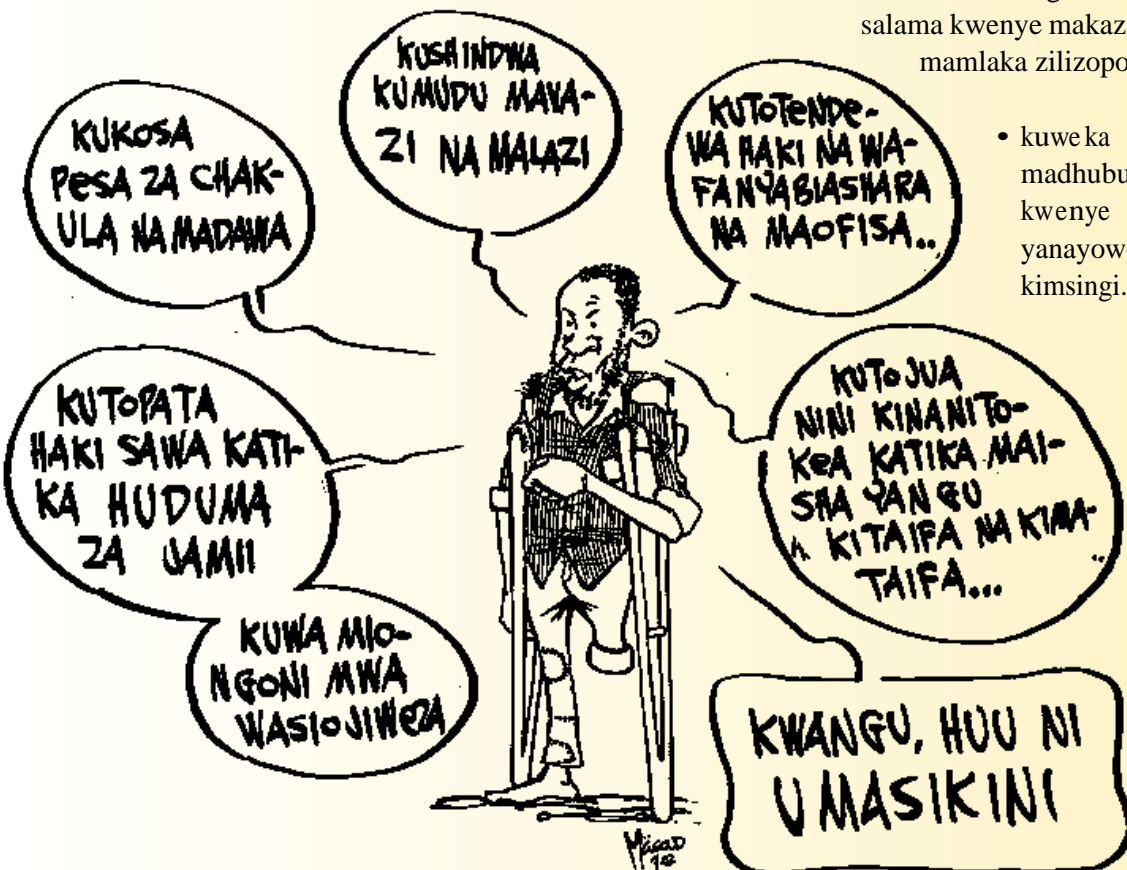 salama kwenye
mamlaka zilizopo
• kuweka
kwenye
kimsingi.
KUKOSA
PESA ZA CHAK-
ULA NA MADAWA
KUSHINDWA
KUMUDU MAVA-
ZI NA MALAZI
KUTOTENDE-
WA HAKI NA WA-
FANYABIASHARA
NA MAOFISA..
KUTOPATA
HAKI SAWA KATI-
KA HUDUMA
ZA JAMII
KUWA MIO-
NGONI MWA
WASIOJIWEZA
KUTOJUA
NINI KINANITO-
KEA KATIKA MAI-
SHA YANGU
KITAIFA NA KIMA-
TAIFA...
KWANGU, HUU NI
UMASIKINI